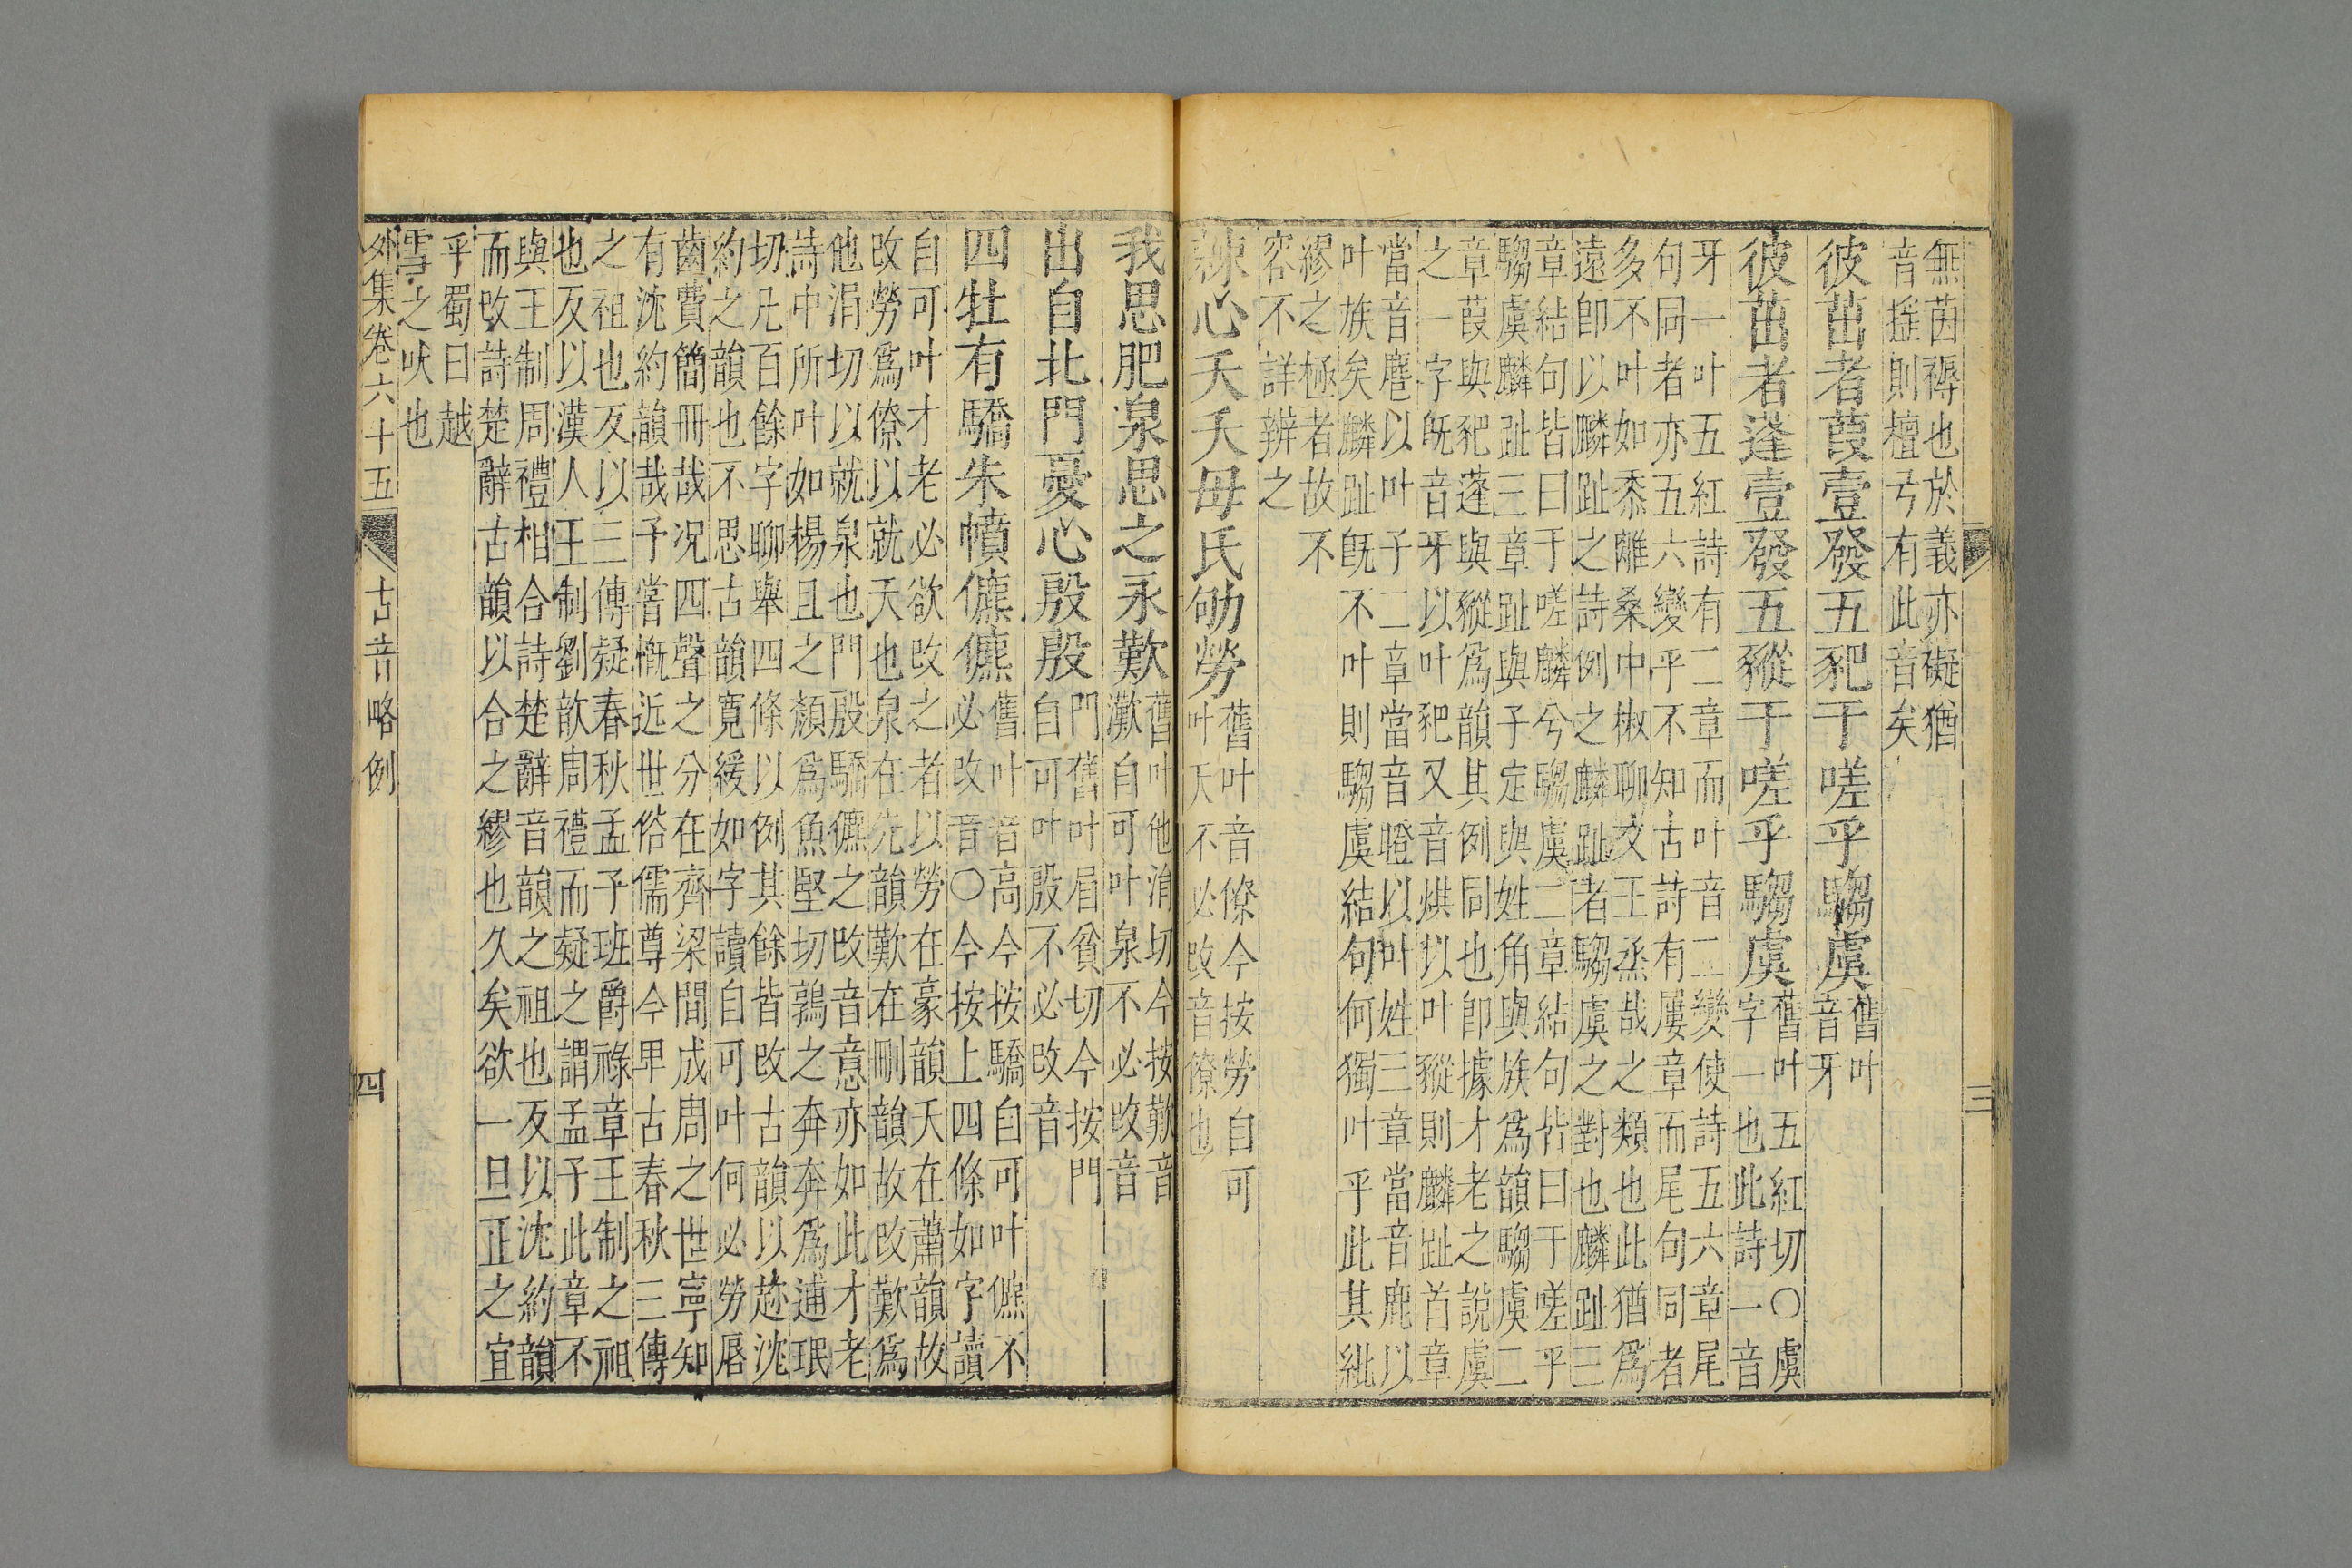 無茵褥也於義亦礙猶
音捱則檀弓有此音矣
彼茁者葭壹發五豝于嗟乎騶虞舊叶
音牙
彼茁者蓬壹發五豵于嗟乎騶虞舊叶五紅切〇虞
字一也此詩一音
牙一叶五紅詩有二章而叶音二變使詩五六章尾
句同者亦五六變乎不知古詩有屢章而尾句同者
多不叶如黍離桑中椒聊文王烝哉之類也此猶爲
遠即以麟趾之詩例之麟趾者騶虞之對也麟趾三
章結句皆曰于嗟麟兮騶虞二章結句皆曰于嗟乎
騶虞麟趾三章趾與子定與姓角與族爲韻騶虞二
章葭與豝蓬與豵爲韻其例同也即據才老之說虞
之一字旣音牙以叶豝又音烘以叶豵則麟趾首章
當音麐以叶子二章當音瞪以叶姓三章當音鹿以
叶族矣麟趾旣不叶則騶虞結句何獨叶乎此其紕
繆之極者故不
容不詳辨之
棘心夭夭母氏劬勞舊叶音僚今按勞自可
叶夭不必改音僚也
我思肥泉思之永歎舊叶他涓切今按歎音
灘自可叶泉不必改音
出自北門憂心殷殷門舊叶眉貧切今按門
自可叶殷不必改音
四牡有驕朱幩儦儦舊叶音高今按驕自可叶儦不
必改音〇今按上四條如字讀
自可叶才老必欲改之者以勞在豪韻夭在蕭韻故
改勞爲僚以就夭也泉在先韻歎在刪韻故改歎爲
他涓切以就泉也門殷驕儦之改音意亦如此才老
詩中所叶如楊且之顏爲魚堅切鶉之奔奔爲逋珉
切凡百餘字聊舉四條以例其餘皆改古韻以趂沈
約之韻也不思古韻寬緩如字讀自可叶何必勞唇
齒費簡冊哉况四聲之分在齊梁間成周之世寧知
有沈約韻哉予嘗慨近世俗儒尊今卑古春秋三傳
之祖也反以三傳疑春秋孟子班爵祿章王制之祖
也反以漢人王制劉歆周禮而疑之謂孟子此章不
與王制周禮相合詩楚辭音韻之祖也反以沈約韻
而改詩楚辭古韻以合之繆也久矣欲一旦正之宜
乎蜀日越
雪之吠也
外集卷六十五 古音略例 四
三